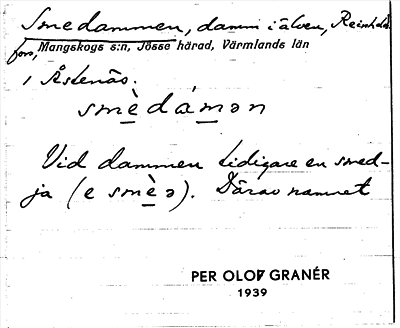 Smedammen, damm i älven, Reinholds
fors, Mangskogs s:n, Jösse härad, Värmlands län
i Åstenäs.
smèdámən
Vid dammen tidigare en smed-
ja (e smèə). Därav namnet
PER OLOF GRANÉR
1939